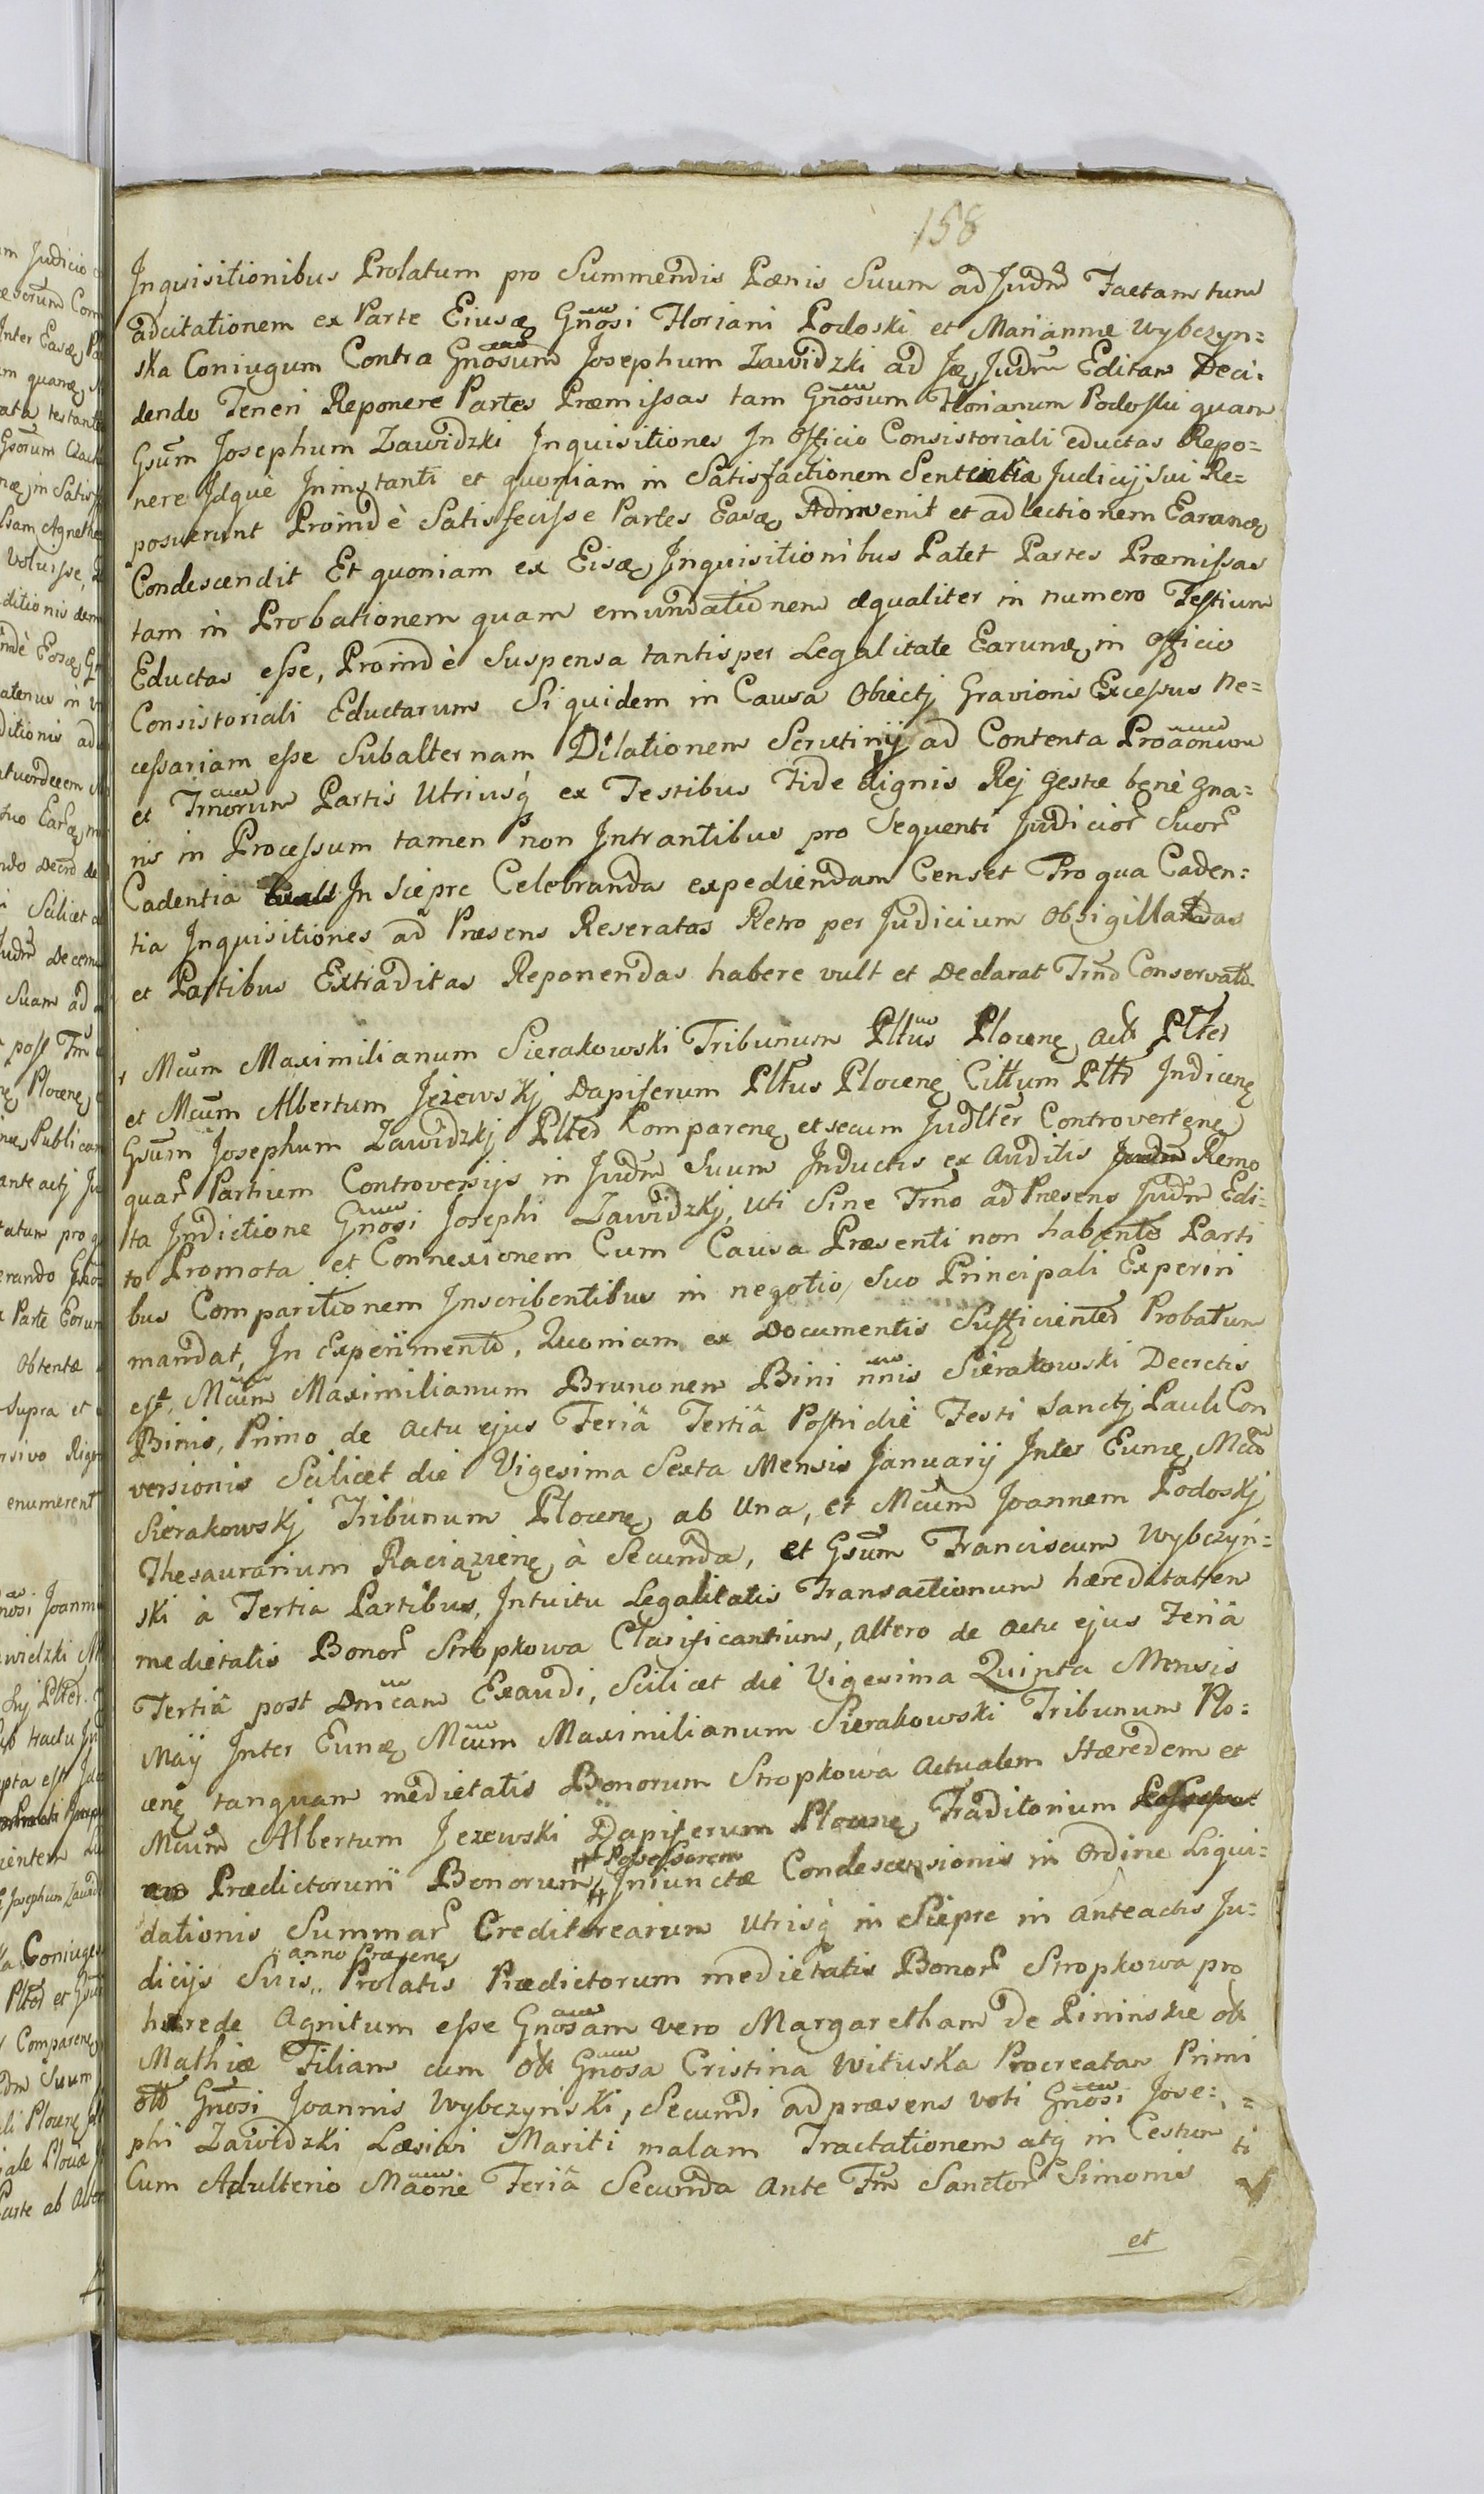 158
Inquisitionibus Prolatum pro Summendis Pænis Suum ad Judm Factam tum
adcitationem ex Parte Eiusdę Gnosi Floriani Podoski et Mariannæ Wybczyn=
ska Coniugum Contra Gnosum Josephum Zawidzki ad Judm Editam Deci=
dendo Teneri Reponere Partes Præmissas tam Gnosum Florianum Podoski quam
Gsum Josephum Zawidzki Inquisitiones In Officio Consistoriali eductas Repo=
nere Idque Ininstanti et quoniam in Satisfactionem Sententiæ Judicij Sui Re=
posuerunt Proindè Satisfecisse Partes Easdę Adinvenit et ad lectionem Earandę
Condescendit Et quoniam ex Eisdę Inquisitionibus Patet Partes Præmissas
tam in Probationem quam emundationem æqualiter in numero Testium
Eductas esse, Proindè Suspensa tantisper Legalitate Earundę in Officio
Consistoriali Eductarum Siquidem in Causa Obiectj Gravioris Excessus ne=
cessariam esse Subalternam Dilationem Scrutinij ad Contenta Proaonum
et Tmorum Partis Utriusq ex Testibus Fide dignis Rej gestæ benè gna=
ris in Processum tamen non Intrantibus pro Sequenti Judicior Suor
Cadentia In Sieprc Celebranda expediendam Censet Pro qua Caden=
tia Inquisitiones ad Præsens Reseratas Retro per Judicium Obsigillandas
et Partibus Extraditas Reponendas habere vult et Declarat Trno Conservato.
Mcum Maximilianum Sierakowski Tribunum Pltus Plocenę act Plter
et Mcum Albertum Jeżewskj Dapiferum Pltus Plocenę Cittum Pltr Indicenę
Gsum Josephum Zawidzkj Plter Comparenę et secum Judlter Controvertenę
quar Partium Controversijs in Judm Suum Inductis ex Auditis Remo
ta Indictione Gnosi Josephi Zawidzkj, uti Sine Trno ad Præsens Judm Edi=
to Promota et Connexionem Cum Causa Præsenti non habento Parti
bus Comparitionem Inscribentibus in negotio Suo Principali Experiri
mandat, In Experimento, Quoniam ex Documentis Sufficienter Probatum
est, Mcum Maximilianum Brunonem Bini nnis Sierakowski Decretis
Binis, Primo de actu ejus Feriâ Tertiâ Postridie Festi Sanctj Pauli Con
versionis Scilicet die Vigesima Sexta Mensis Januarij Inter Eundę Mcum
Sierakowskj Tribunum Plocenę ab Una, et Mcum Joannem Podoskj
Thesaurarium Raciązienę à Secunda, et Gsum Franciscum Wybczyn=
ski à Tertia Partibus, Intuitu Legalitatis Transactionum hæreditatem
medietatis Bonor Stropkowa Clarificantium, altero de actu ejus Feriâ
Tertiâ post Dnicam Exaudi, Scilicet die Vigesima Quinta Mensis
Maij Inter Eundę Mcum Maximilianum Sierakowski Tribunum Plo=
cenę tanquam medietatis Bonorum Stropkowa Actualem Hæredem et
Mcum Albertum Jezewski Dapiferum Plocenę Traditorium
Prædictorum Bonorum # Possessorem # Iniunctæ Condescensionis in Ordine Liqui=
dationis Summar Creditorearum utrisq in Sieprc in Anteactis Ju=
dicijs Suis anno Præsenę Prolatis Prædictorum medietatis Bonor Stropkowa pro
hærede Agnitum esse Gnosam vero Margaretham de Pininskie olt
Mathiæ Filiam cum olt Gnosa Cristina Wituska Procreatam Primi
olt Gnosi Joannis Wybczynski, Secundi ad præsens voti Gnosi Jose=
phi Zawidzki Læsivi Mariti malam Tractationem atq in Cestum
Cum Adulterio Maone Feriâ Secunda Ante Fm Sanctor Simonis
et